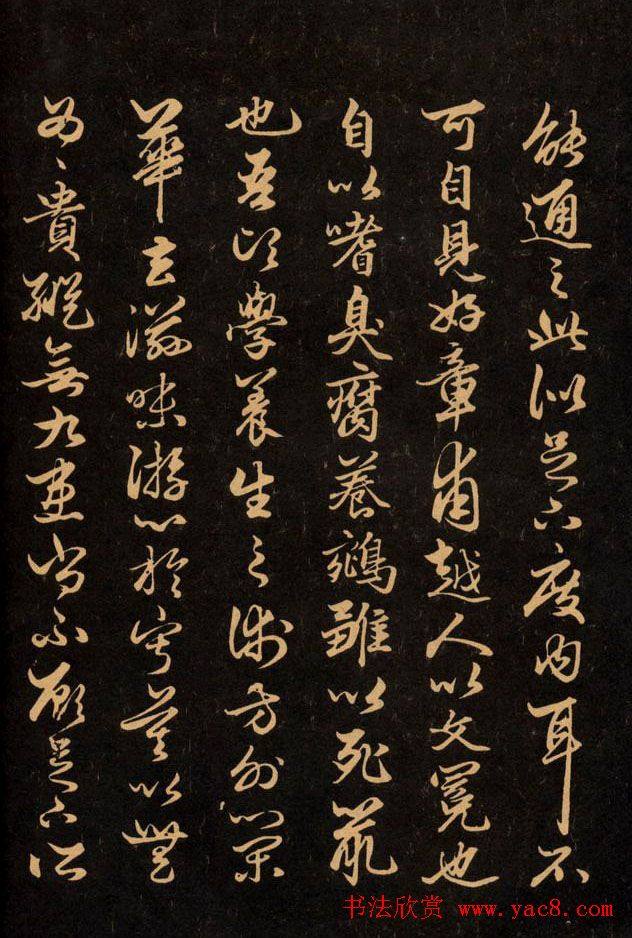 能通之此似足下度內耳不
可自見好章甫越人以文冕也
自以嗜臭腐養鵷雛以死鼠
也吾頃學養生之術方外榮
華去滋味游心於寂莫以無
為〻貴縱無九患尚不顧足下所
书法欣赏 www.yac8.com